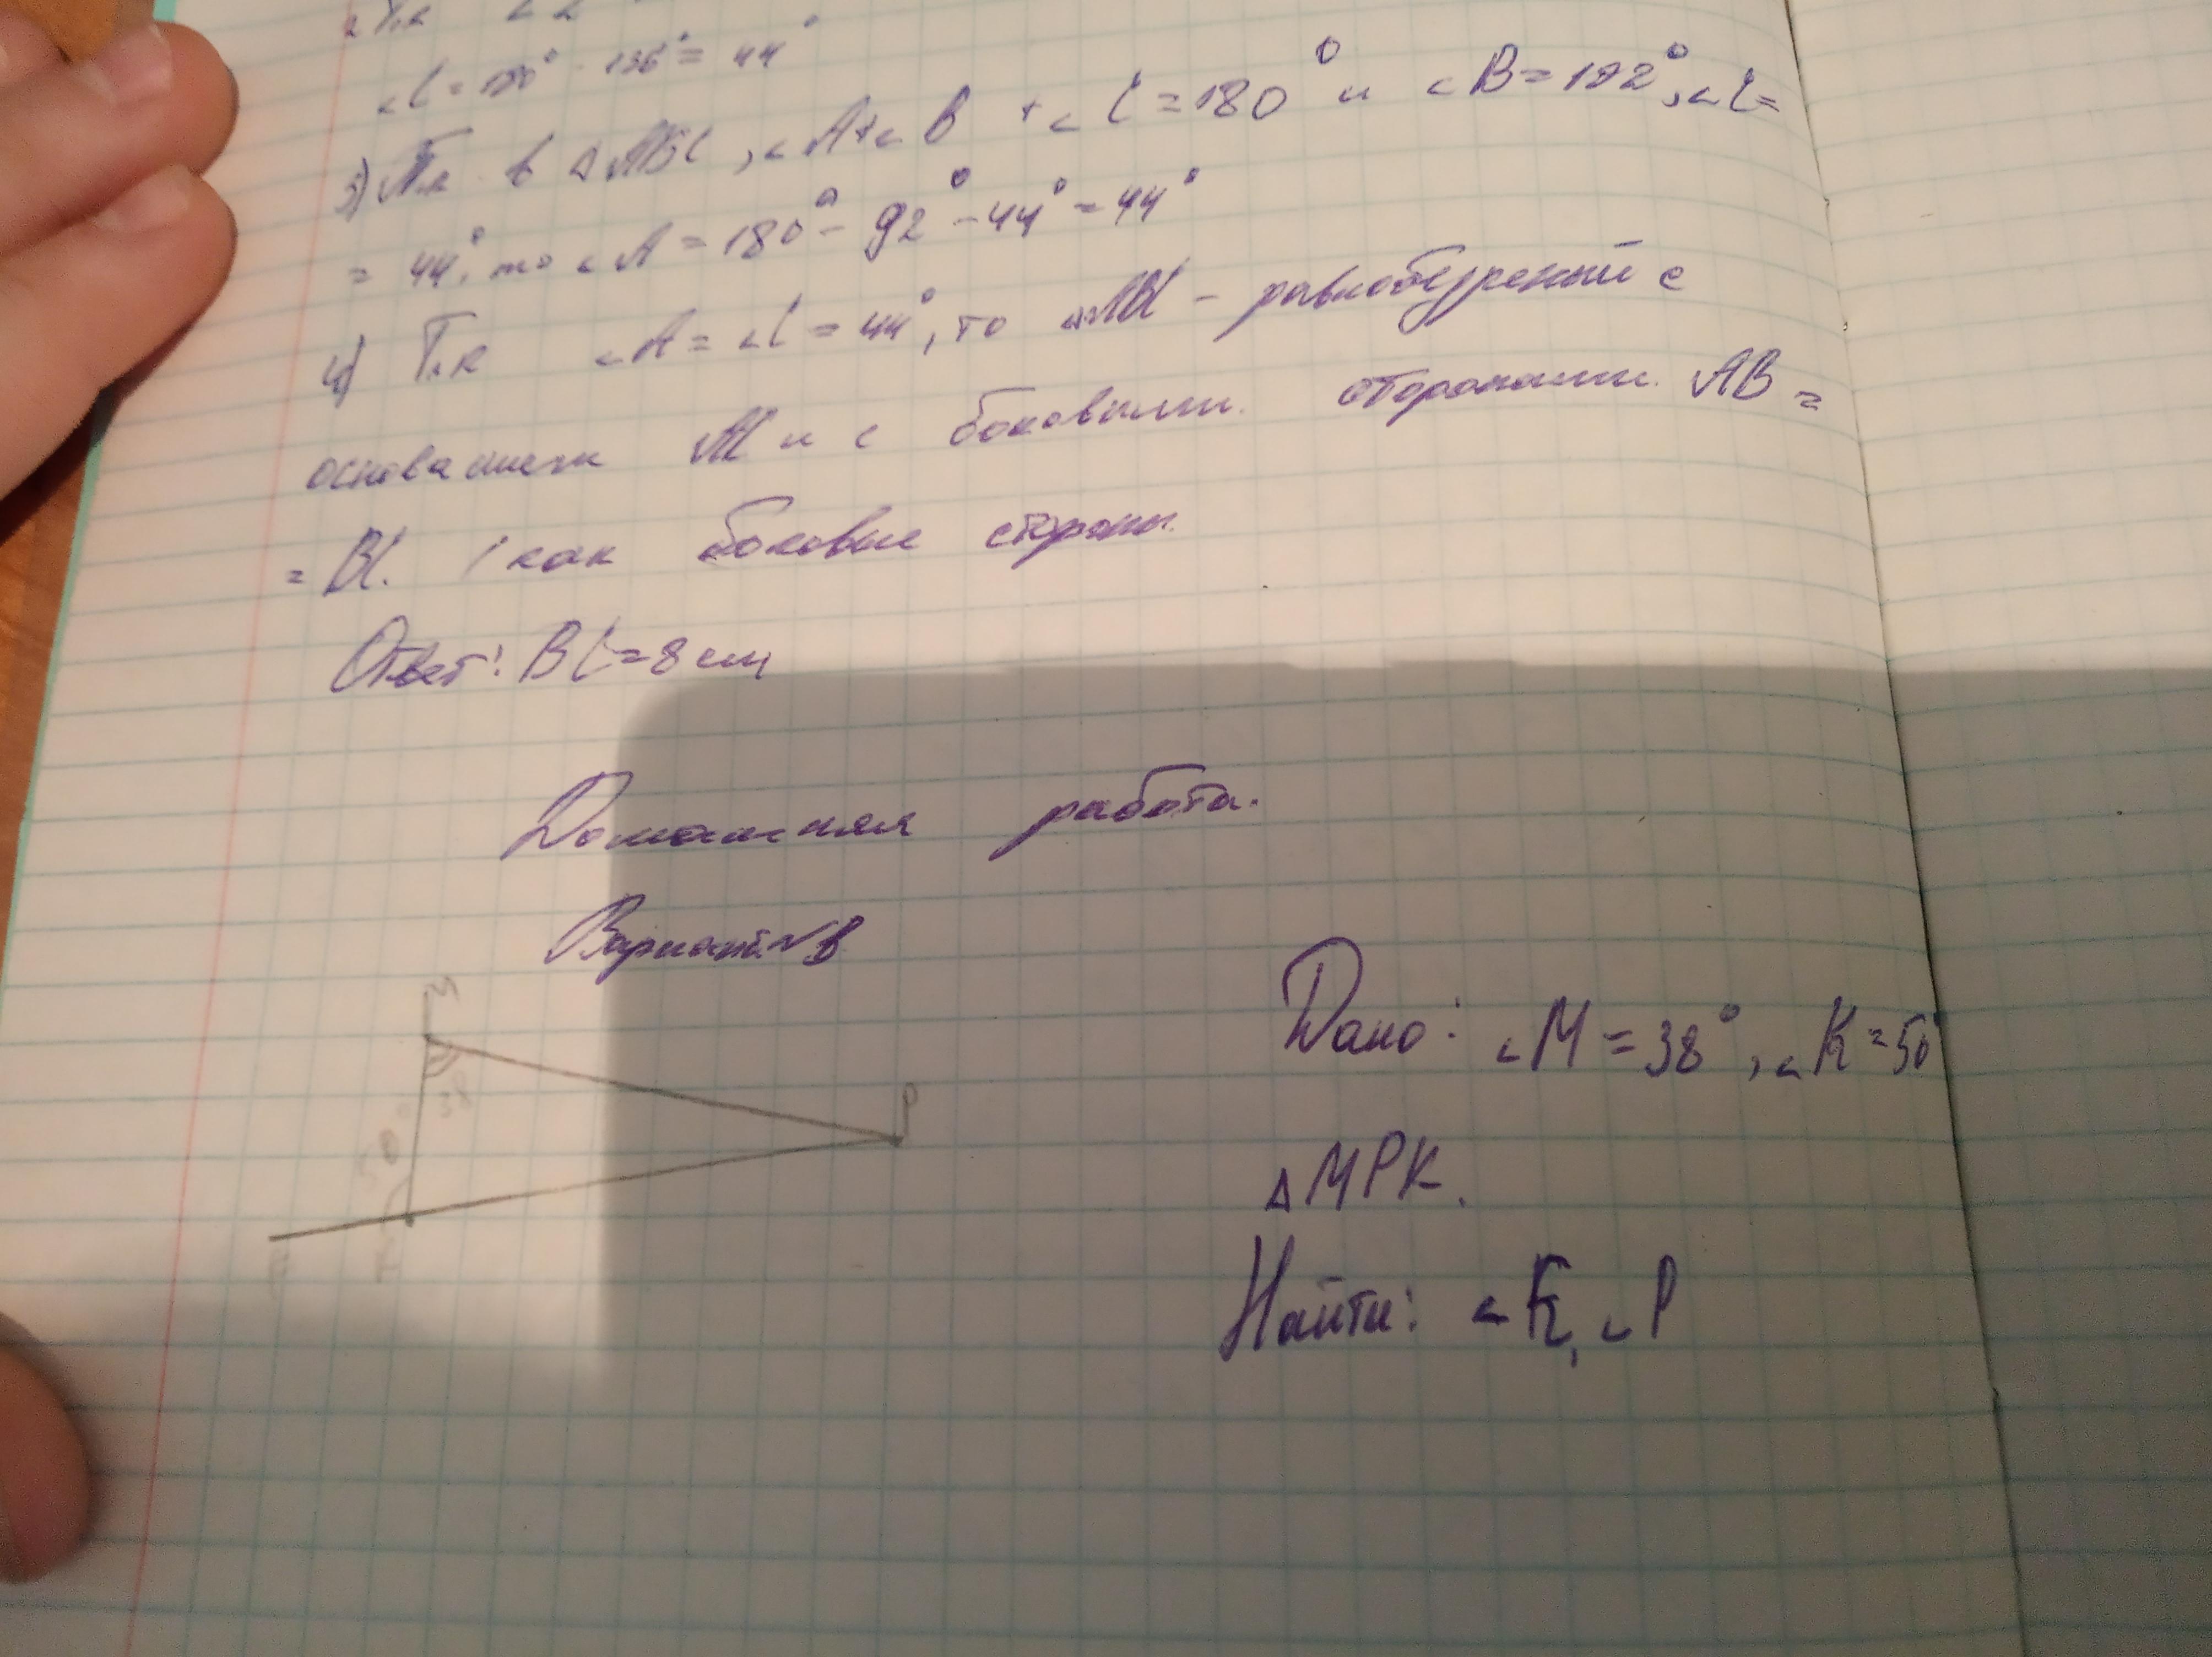 ∠C = 180° - 136° = 44°
3) Т.к в △ABC, ∠A+∠B + ∠C = 180° и ∠B = 192°, ∠C =
= 44°, то ∠A = 180° - 92° - 44° = 44°
4) Т.к ∠A = ∠C = 44°, то △ABC - равнобедренный с
основанием AC и с боковыми сторонами AB =
= BC. как боковые стороны.
Ответ: BC = 8 см
Домашняя работа.
Вариант
Дано: ∠M = 38°, ∠K = 50°
△MPK.
Найти: ∠K, ∠P
P
38
50°